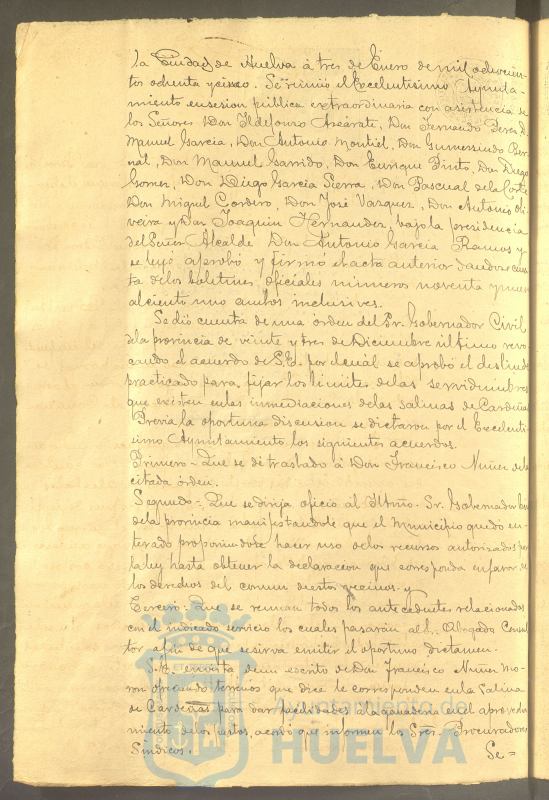 La Ciudad de Huelva á tres de Enero de mil ochocien-
tos ochenta y cinco. Se reunió el Excelentísimo Ayunta-
miento en sesion pública extraordinaria con asistencia de
los Señores Don Ildefonso Azcárate, Don Fernando Perez, D.
Manuel Garcia, Don Antonio Montiel, Don Gumersindo Ber
nal, Don Manuel Garrido, Don Enrique Pinto, Don Diego
Gomez, Don Diego Garcia Sierra, Don Pascual de la Corte
Don Miguel Cordero, Don José Vazquez, Don Antonio Oli
veira y Don Joaquin Hernandez, bajo la presidencia
del Señor Alcalde Don Antonio Garcia Ramos y
se leyó aprobó y firmó el acta anterior dandose cuen
ta de los boletines oficiales números noventa y nueve
al ciento uno ambos inclusives.
Se dió cuenta de una órden del Sr. Gobernador Civil
de la provincia de veinte y tres de Diciembre último revo
cando el acuerdo de S.E. por el cual se aprobó el deslinde
practicado para fijar los límites de las servidumbres
que existen en las inmediaciones de las salinas de Cardeñas
Previa la oportuna discusion se dictaron por el Excelentí
simo Ayuntamiento los siguientes acuerdos.
Primero- Que se dé traslado á Don Francisco Nuñez de la
citada órden.
Segundo- Que se dirija oficio al Iltmo. Sr. Gobernador Civil
de la provincia manifestandole que el Municipio quedó en-
terado proponiendose hacer uso de los recursos autorizados por
la ley hasta obtener la declaracion que corresponda en favor de
los derechos del comun de estos vecinos. y
Tercero- Que se reunan todos los antecedentes relacionados
con el indicado servicio los cuales pasarán al Sr. Abogado Consul
tor á fin de que se sirva emitir el oportuno dictamen.
S.E. en vista de un escrito de Don Francisco Nuñez Mo-
ron ofreciendo terrenos que dice le corresponden en la Salina
de Cardeñas para dar facilidades á la ganaderia en el aprovecha
miento de los pastos, acordó que informen los Sres. Procuradores
Síndicos.
Se =
Ayuntamiento de
HUELVA